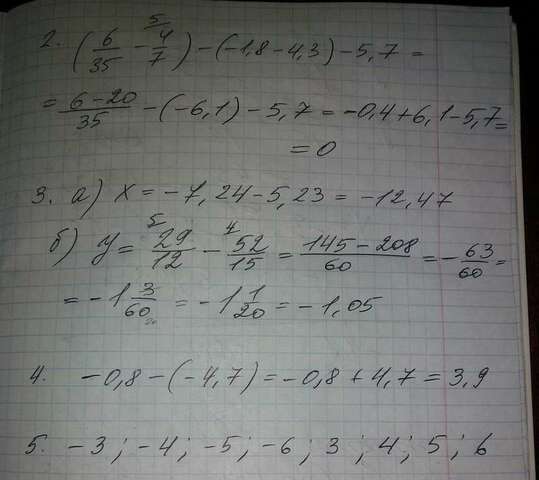 2. (6/35 - 4/7⁵) - (-1,8 - 4,3) - 5,7 =
= (6-20)/35 - (-6,1) - 5,7 = -0,4 + 6,1 - 5,7 =
= 0
3. а) x = -7,24 - 5,23 = -12,47
б) y = ⁵29/12 - ⁴52/15 = (145-208)/60 = -63/60 =
= -1 3/60 = -1 1/20 = -1,05
4. -0,8 - (-4,7) = -0,8 + 4,7 = 3,9
5. -3 ; -4 ; -5 ; -6 ; 3 ; 4 ; 5 ; 6